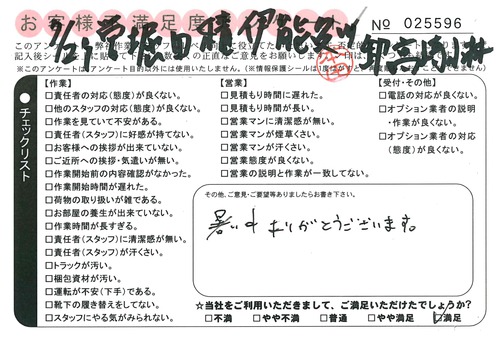 お客様満足度
No 025596
※このアンケートはアンケート目的以外には使用いたしません。
チェックリスト
【作業】
□責任者の対応(態度)が良くない。
□他のスタッフの対応(態度)が良くない。
□作業を見ていて不安がある。
□責任者(スタッフ)に好感が持てない。
□お客様への挨拶が出来ていない。
□ご近所への挨拶・気遣いが無い。
□作業開始前の内容確認がなかった。
□作業開始時間が遅れた。
□荷物の取り扱いが雑である。
□お部屋の養生が出来ていない。
□作業時間が長すぎる。
□責任者(スタッフ)に清潔感が無い。
□責任者(スタッフ)が汗くさい。
□トラックが汚い。
□梱包資材が汚い。
□運転が不安(下手)である。
□靴下の履き替えをしてない。
□スタッフにやる気がみられない。
【営業】
□見積もり時間に遅れた。
□見積もり時間が長い。
□営業マンに清潔感が無い。
□営業マンが煙草くさい。
□営業マンが汗くさい。
□営業態度が良くない。
□営業の説明と作業が一致してない。
【受付・その他】
□電話の対応が良くない。
□オプション業者の説明
・作業が良くない。
□オプション業者の対応
(態度)が良くない。
その他、ご意見・ご要望等ありましたらお書き下さい。
暑い中ありがとうございます。
☆当社をご利用いただきまして、ご満足いただけたでしょうか?
□不満 □やや不満 □普通 □やや満足 □満足